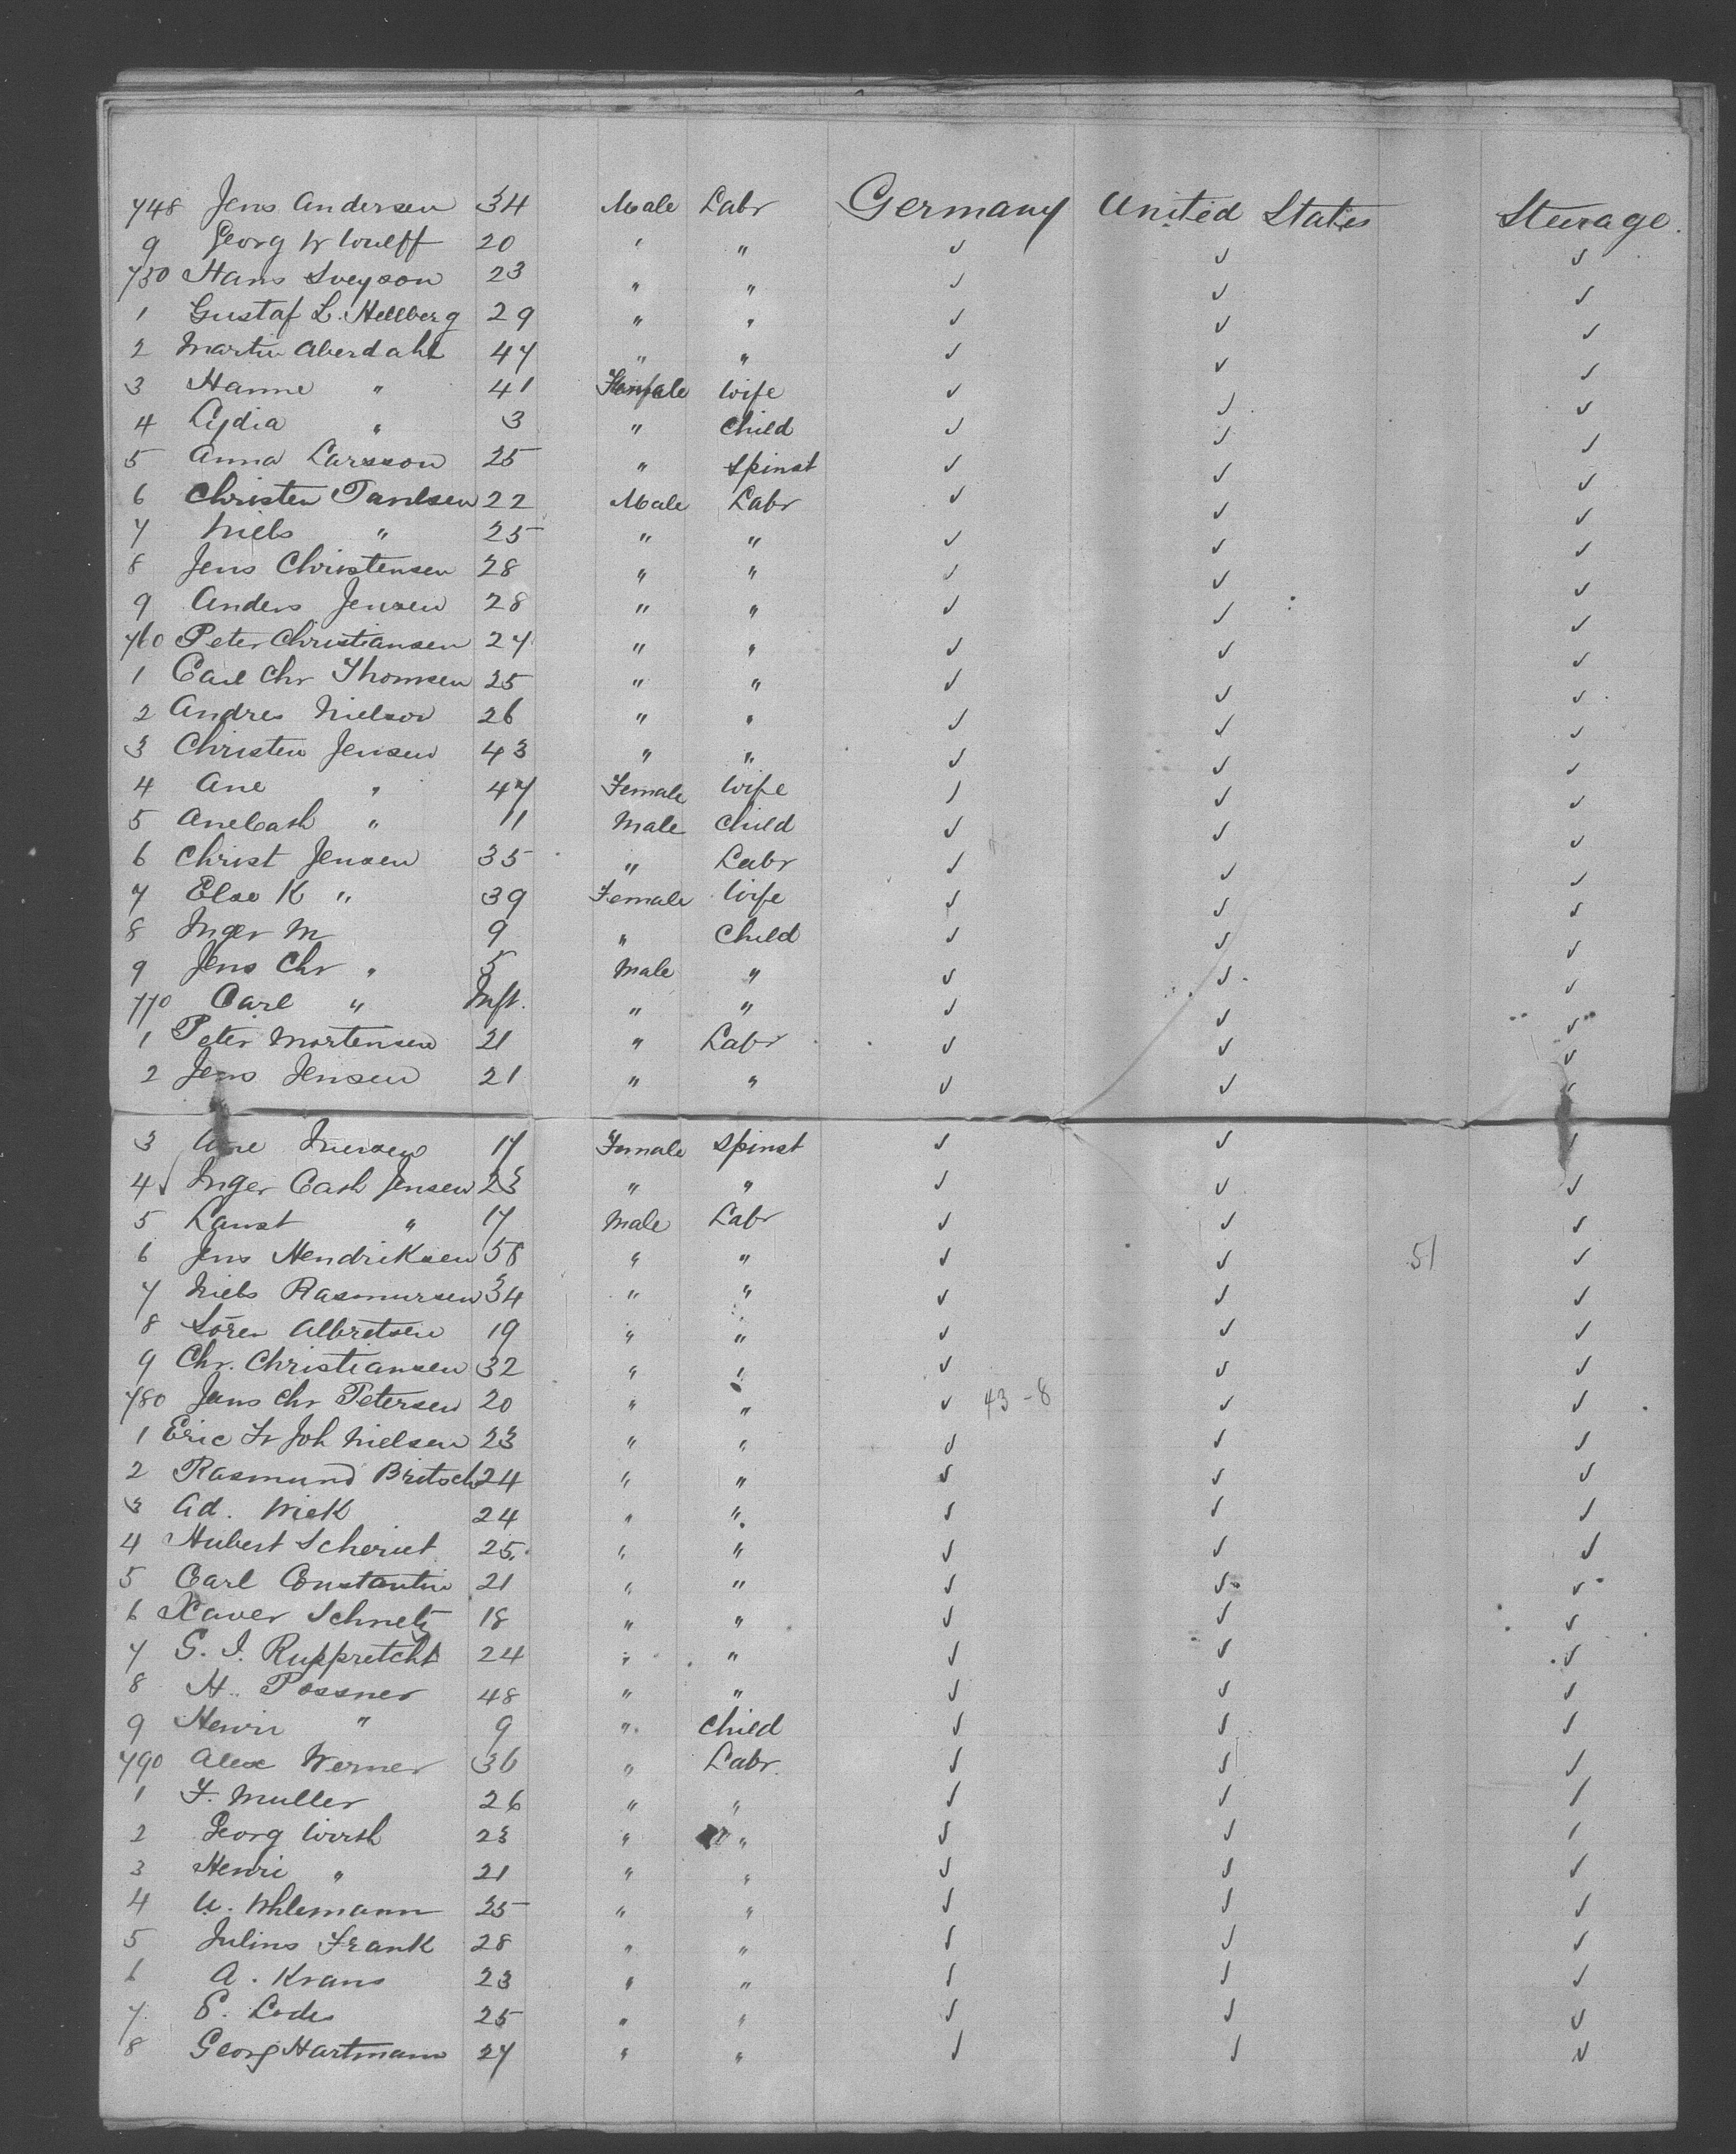 748 Jens Andersen 34 Male Labr Germany United States Steerage.
9 Georg W Wulff 20 " " ✓ ✓ ✓
750 Hans Sveyson 23 " " ✓ ✓ ✓
1 Gustaf L. Hellberg 29 " " ✓ ✓ ✓
2 Martin Aberdahl 47 " " ✓ ✓ ✓
3 Hanne " 41 Female Wife ✓ ✓ ✓
4 Lydia " 3 " Child ✓ ✓ ✓
5 Anna Larsson 25 " Spinst ✓ ✓ ✓
6 Christen Paulsen 22 Male Labr ✓ ✓ ✓
7 Niels " 25 " " ✓ ✓ ✓
8 Jens Christensen 28 " " ✓ ✓ ✓
9 Anders Jensen 28 " " ✓ ✓ ✓
760 Peter Christiansen 27 " " ✓ ✓ ✓
1 Carl Chr Thomsen 25 " " ✓ ✓ ✓
2 Andres Nielson 26 " " ✓ ✓ ✓
3 Christen Jensen 43 " " ✓ ✓ ✓
4 Ane " 47 Female Wife ✓ ✓ ✓
5 Ane Cath " 11 Male Child ✓ ✓ ✓
6 Christ Jensen 35 " Labr ✓ ✓ ✓
7 Else K " 39 Female Wife ✓ ✓ ✓
8 Inger M 9 " Child ✓ ✓ ✓
9 Jens Chr " 5 Male " ✓ ✓ ✓
770 Carl " Inft. " " ✓ ✓ ✓
1 Peter Mortensen 21 " Labr ✓ ✓ ✓
2 Jens Jensen 21 " " ✓ ✓ ✓
3 Ane 17 Female Spinst ✓ ✓ ✓
4 ✓ Inger Cath Jensen 23 " " ✓ ✓ ✓
5 Laust " 17 Male Labr ✓ ✓ ✓
6 Jens Hendriksen 58 " " ✓ ✓ 51 ✓
7 Niels Rasmursen 34 " " ✓ ✓ ✓
8 Sören Albretsen 19 " " ✓ ✓ ✓
9 Chr. Christiansen 32 " " ✓ ✓ ✓
780 Jens Chr Petersen 20 " " ✓ 43-8 ✓ ✓
1 Eric Fr Joh Nielsen 23 " " ✓ ✓ ✓
2 Rasmund Britsch 24 " " ✓ ✓ ✓
3 Ad. Wick 24 " " ✓ ✓ ✓
4 Hubert 25 " " ✓ ✓ ✓
5 Carl Constantin 21 " " ✓ ✓ ✓
6 Xaver Schnetz 18 " " ✓ ✓ ✓
7 G. J. Ruppretcht 24 " " ✓ ✓ ✓
8 H. Possner 48 " " ✓ ✓ ✓
9 Henri " 9 " Child ✓ ✓ ✓
790 Alex Werner 36 " Labr. ✓ ✓ ✓
1 F. Muller 26 " " ✓ ✓ ✓
2 Georg Wirth 23 " " ✓ ✓ ✓
3 Henri " 21 " " ✓ ✓ ✓
4 U. Whlemann 25 " " ✓ ✓ ✓
5 Julius Frank 28 " " ✓ ✓ ✓
6 A. Krans 23 " " ✓ ✓ ✓
7 E. Lodes 25 " " ✓ ✓ ✓
8 Georg Hartmann 27 " " ✓ ✓ ✓